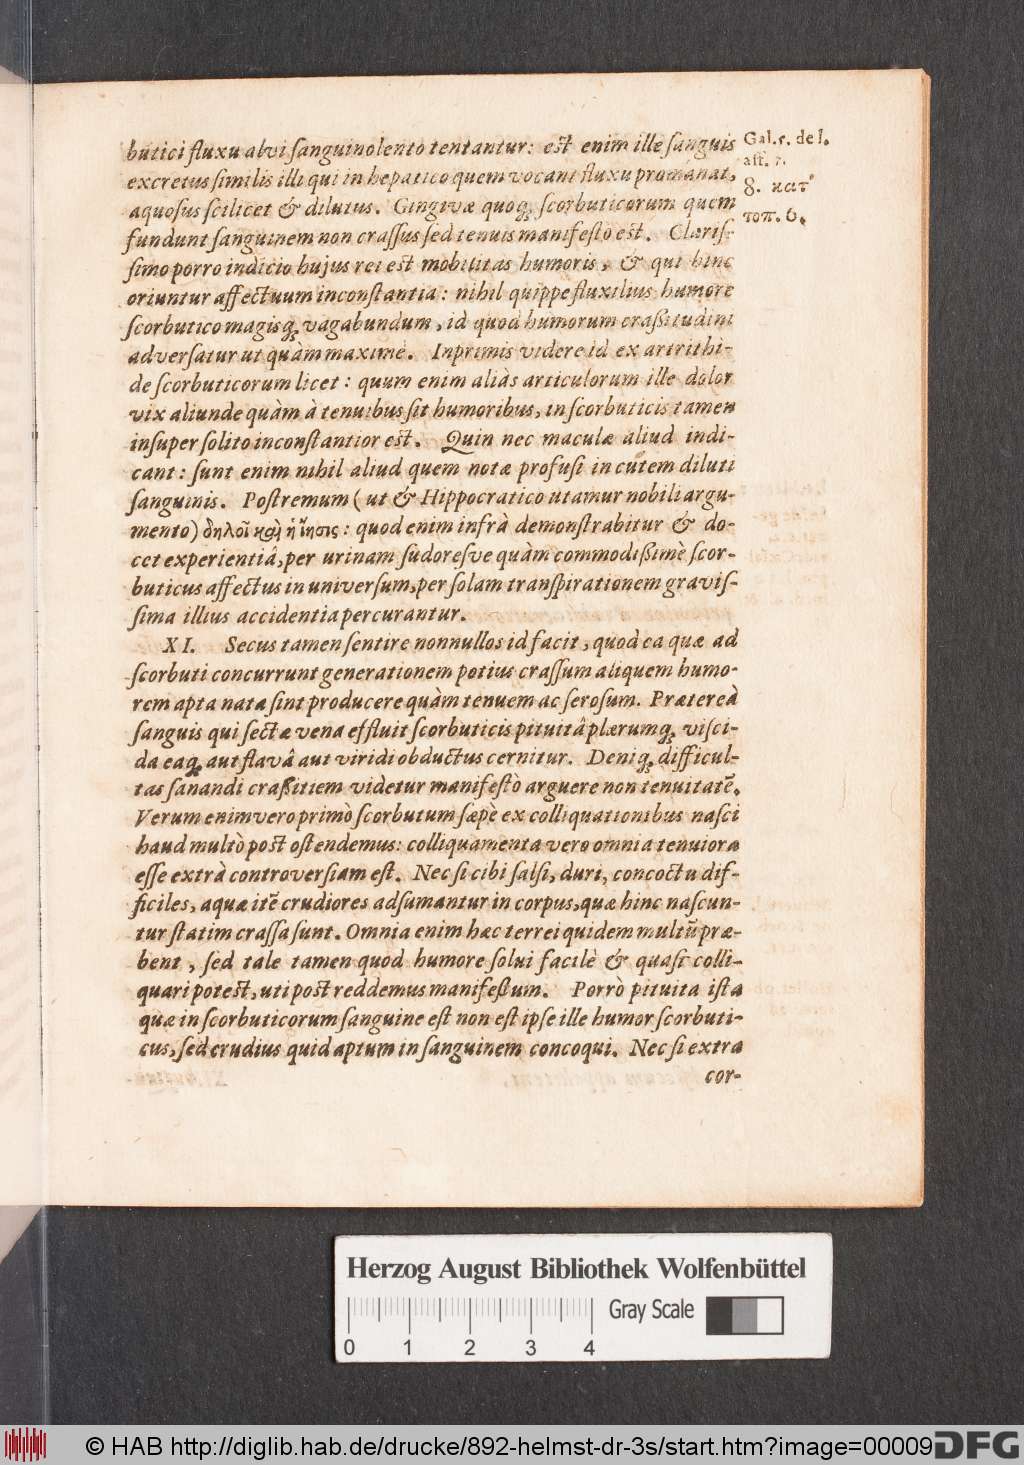 butici fluxu alvi ſanguinolento tentantur: eſt enim ille ſanguis
excretus ſimilis illi qui in hepatico quem vocant fluxu promanat,
aquoſus ſcilicet & dilutus. Gingivæ quoq; ſcorbuticorum quem
fundunt ſanguinem non craſſus ſed tenuis manifeſto eſt. Clariſ-
ſimo porro indicio hujus rei eſt mobilitas humoris, & qui hinc
oriuntur affectuum inconſtantia: nihil quippe fluxilius humore
ſcorbutico magisq; vagabundum, id quod humorum craßitudini
adverſatur ut quàm maximè. Inprimis videre id ex artrithi-
de ſcorbuticorum licet: quum enim aliàs articulorum ille dolor
vix aliunde quàm à tenuibus ſit humoribus, in ſcorbuticis tamen
inſuper ſolito inconſtantior eſt. Quin nec maculæ aliud indi-
cant: ſunt enim nihil aliud quem notæ profuſi in cutem diluti
ſanguinis. Poſtremum (ut & Hippocratico utamur nobili argu-
mento) δηλοῖ καὶ ἡ ἴησις: quod enim infrà demonſtrabitur & do-
cet experientiâ, per urinam ſudoreſve quàm commodißimè ſcor-
buticus affectus in univerſum, per ſolam tranſpirationem graviſ-
ſima illius accidentia percurantur.
XI. Secus tamen ſentire nonnullos id facit, quod ea quæ ad
ſcorbuti concurrunt generationem potius craſſum aliquem humo-
rem apta nata ſint producere quàm tenuem ac ſeroſum. Prætereà
ſanguis qui ſectæ vena effluit ſcorbuticis pituitâ plærumq; viſci-
da eaq; aut flavâ aut viridi obductus cernitur. Deniq; difficul-
tas ſanandi craßitiem videtur manifeſtò arguere non tenuitatē.
Verum enimvero primò ſcorbutum ſæpè ex colliquationibus naſci
haud multò poſt oſtendemus: colliquamenta vero omnia tenuiora
eſſe extrà controverſiam eſt. Nec ſi cibi ſalſi, duri, concoctu dif-
ficiles, aquæ itē crudiores adſumantur in corpus, quæ hinc naſcun-
tur ſtatim craſſa ſunt. Omnia enim hæc terrei quidem multū præ-
bent, ſed tale tamen quod humore ſolui facilè & quaſi colli-
quari poteſt, uti poſt reddemus manifeſtum. Porrò pituita iſta
quæ in ſcorbuticorum ſanguine eſt non eſt ipſe ille humor ſcorbuti-
cus, ſed crudius quid aptum in ſanguinem concoqui. Nec ſi extra
cor-
Gal. 5. de l.
aff. 7.
8. κατ'
τοπ. 6.
Herzog August Bibliothek Wolfenbüttel
Gray Scale
0 1 2 3 4
© HAB http://diglib.hab.de/drucke/892-helmst-dr-3s/start.htm?image=00009
DFG